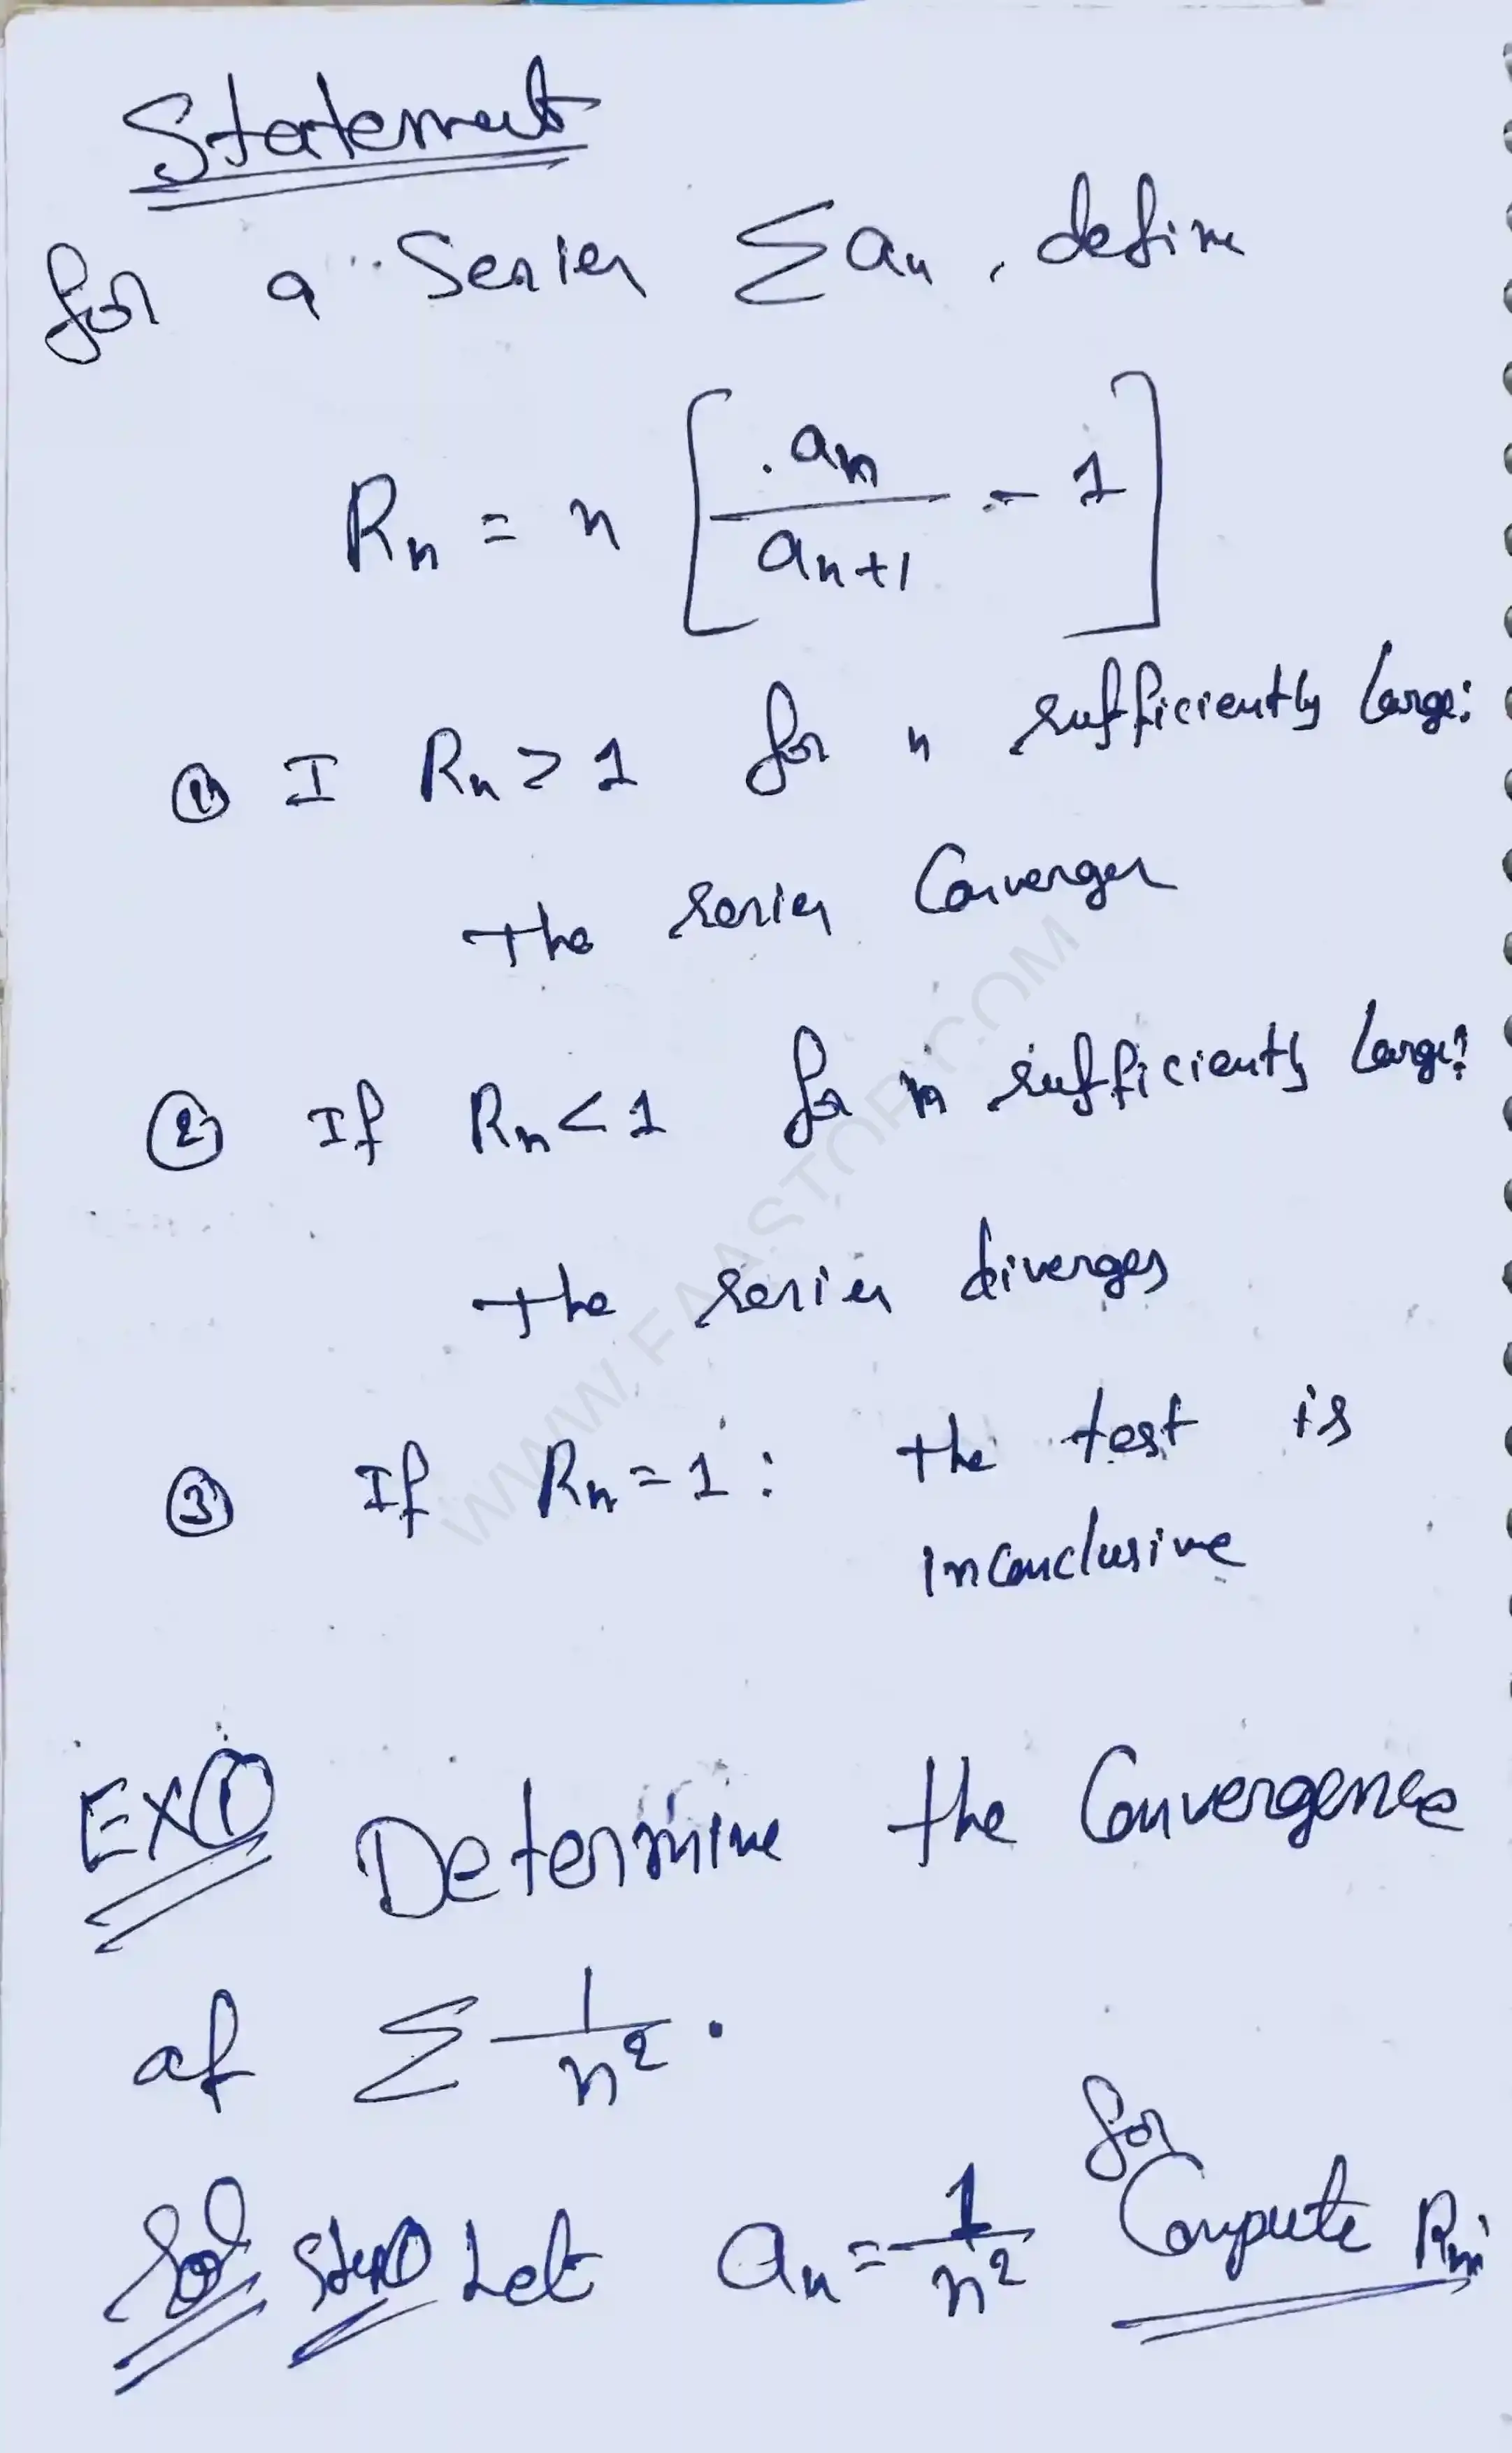 Statement
for a Series Σan, define
Rn = n [ an / an+1 - 1 ]
① I Rn > 1 for n sufficiently large:
the series Converges
② If Rn < 1 for n sufficiently large:
the series diverges
③ If Rn = 1: the test is
inconclusive
EX① Determine the Convergence
of Σ 1/n².
Sol Step① Let an = 1/n² for Compute Rn:
WWW.FAASTOP.COM